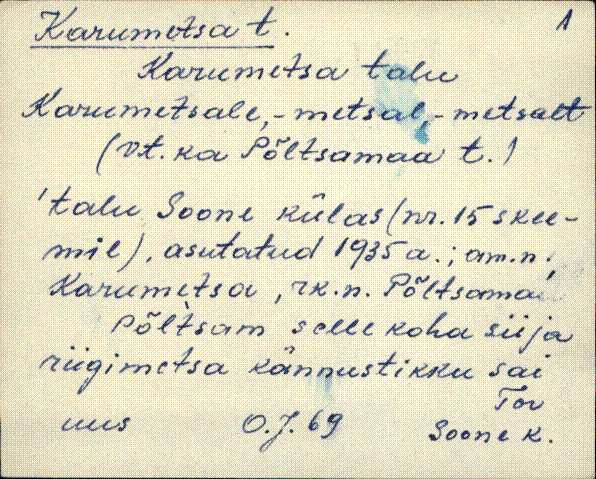 Karumetsa t. 1
Karumetsa talu
Karumetsale, -metsal, -metsalt
(vt. ka Põltsamaa t.)
'talu Soone külas (nr. 15 skee-
mil), asutatud 1935 a.; am.n.
Karumetsa, rk.n. Põltsamaa.
Põltsam selle koha siija
riigimetsa kännustikku sai
Tor
uus O.J. 69 Soone k.